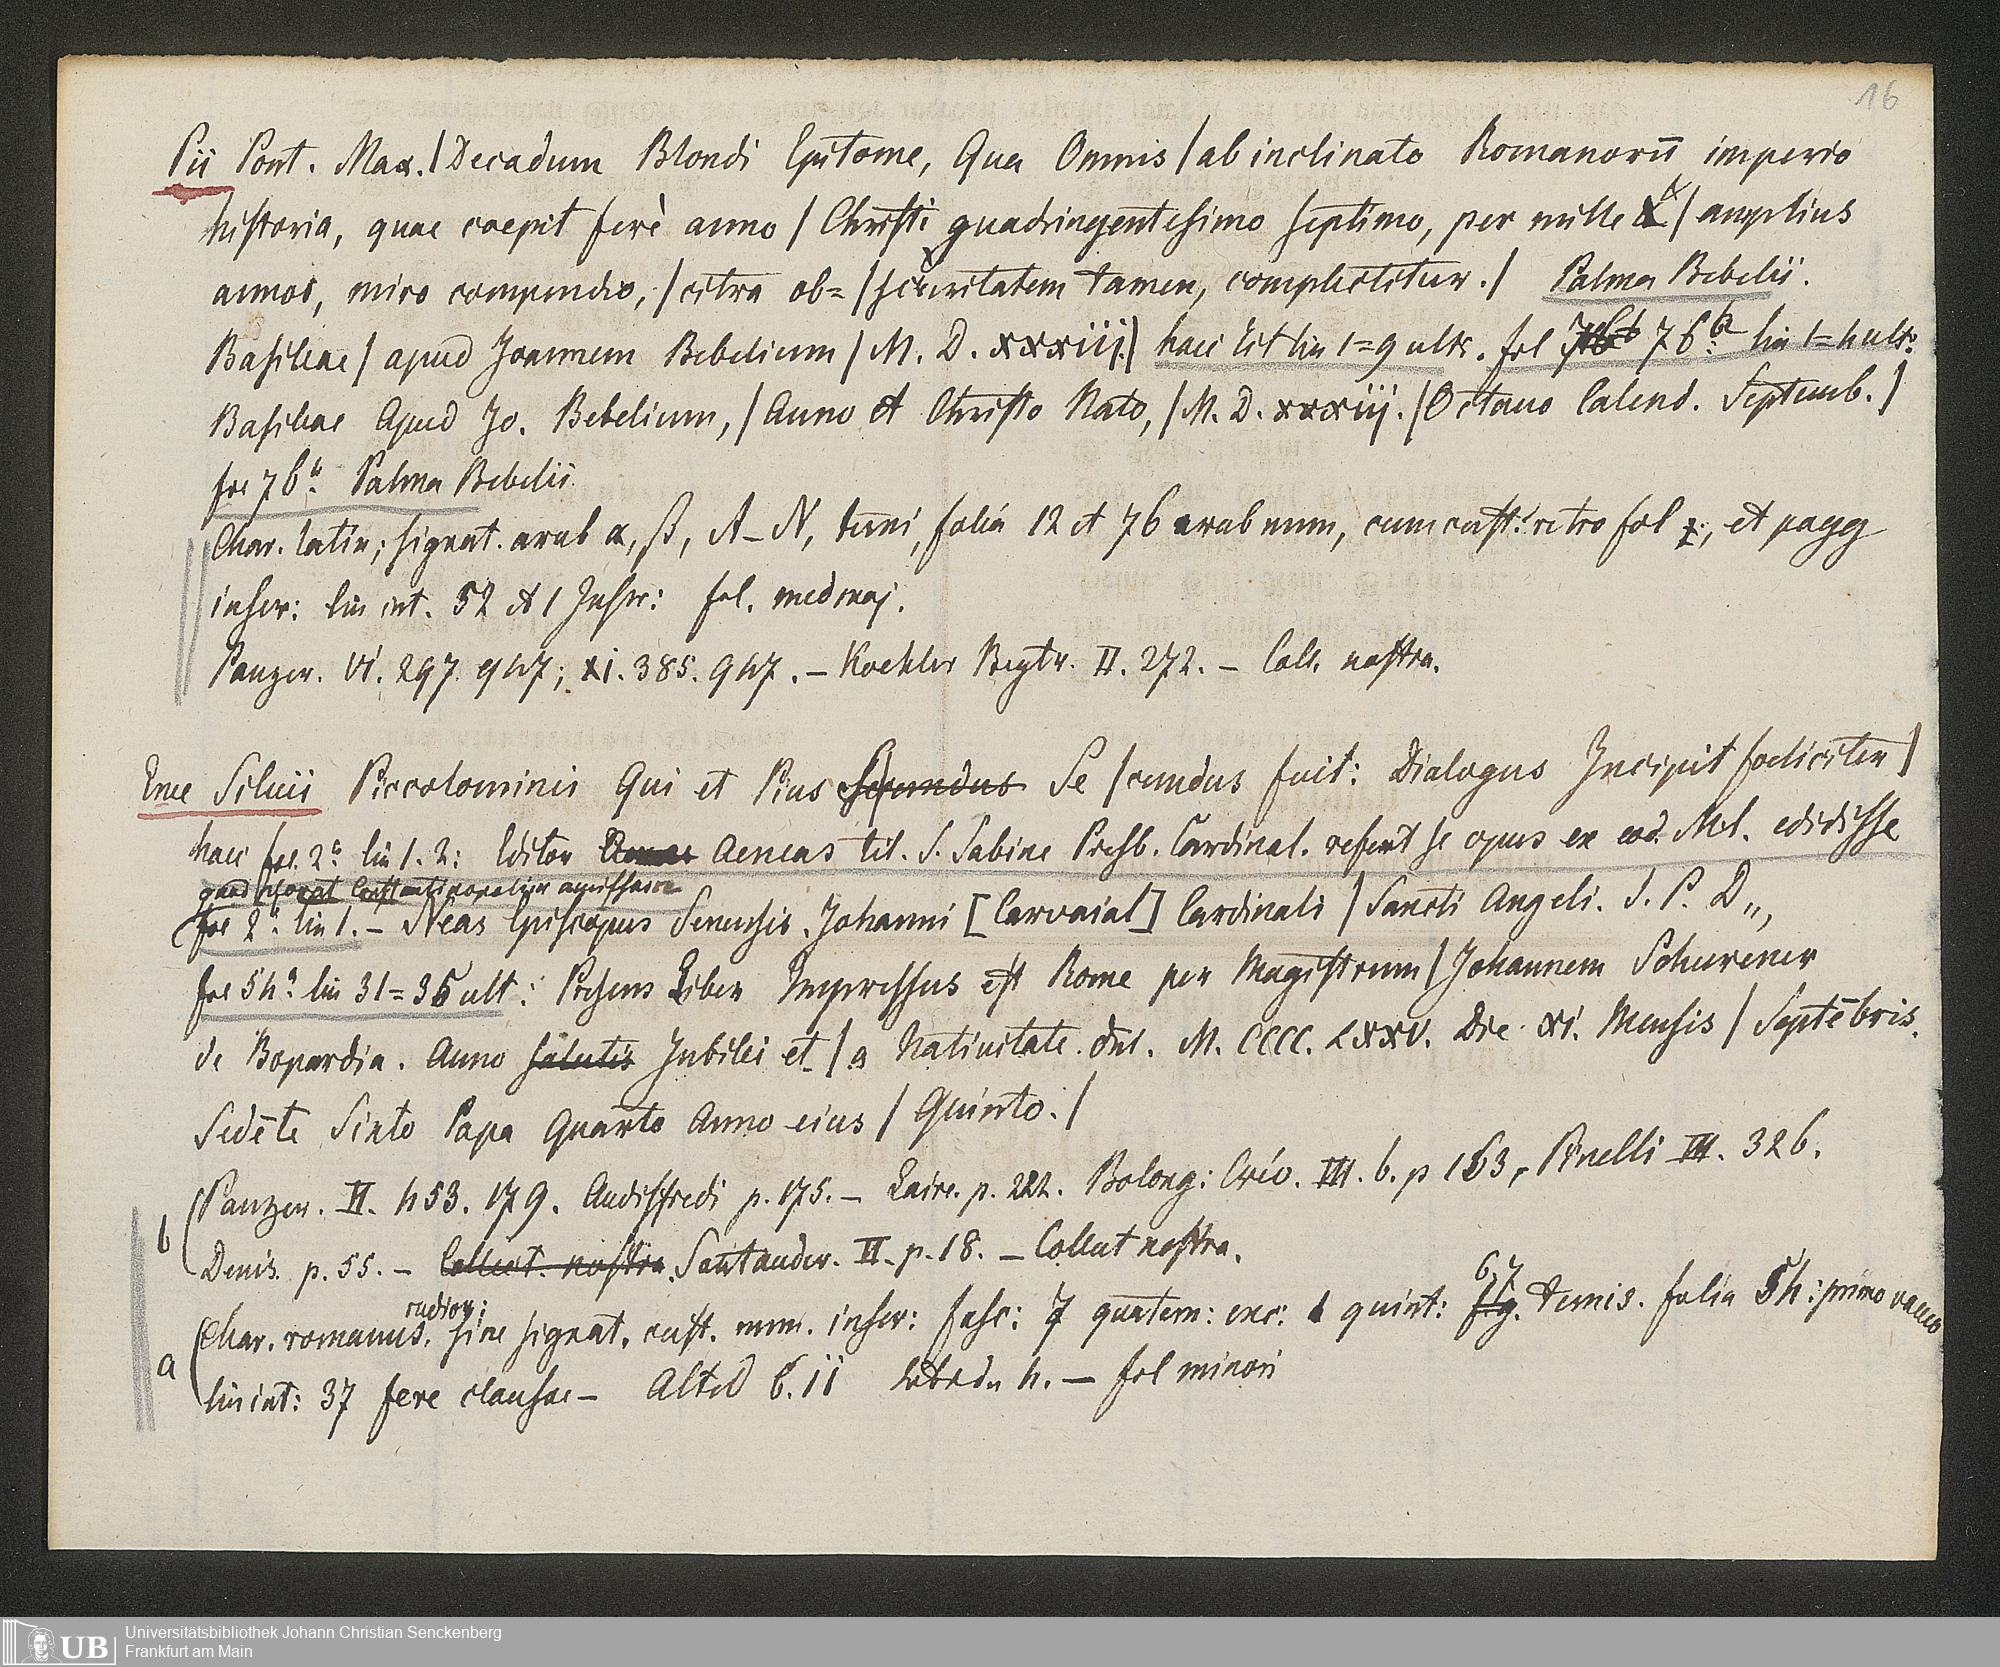 16
Pii Pont. Max. | Decadum Blondi Epitome, Qua Omnis | ab inclinato Romanorū imperio
historia, quae coepit ferè anno | Christi quadringentesimo septimo, per mille & | amplius
annos, miro compendio, | citra ob= | scuritatem tamen, complectitur. | Palma Bebelii.
Basileae | apud Joannem Bebelium | M. D. xxxiij. | haec tit lin 1=9 ult. fol 76 lin 1=4 ult:
Basileae Apud Jo. Bebelium, | Anno A Christo Nato, | M. D. xxxiij. | Octauo Calend. Septemb. |
fol 76 Palma Bebelii
Char. latin; signat. arab α, β, A–N, terni, folia 12 et 76 arab num, cum cust: retro fol et pagg
inscr: lin int. 52 et 1 Inscr: fol. med maj.
Panzer. VI. 297. 947; XI. 385. 947. – Koehler Beytr. II. 272. – Coll. nostra.
Enee Siluii Piccolominis Qui et Pius Secundus Se | cundus fuit: Dialogus Incipit foeliciter |
haec fol. 2ª lin 1. 2: Editor Aeneas tit. S. Sabine Presb. Cardinal. refert se opus ex cod. Mſ. edidisse
quod Constantinopolim amissam
fol 2 lin 1. – Neas Episcopus Senensis. Johanni [Carvaial] Cardinali | Sancti Angeli. S. P. D.,,
fol 54ª lin 31=36 ult: Presens Liber Impressus est Rome per Magistrum | Johannem Schurener
de Bopardia. Anno salutis Jubilei et | a Natiuitate dni. M. CCCC. LXXV. Die XI. Mensis | Septēbris.
Sedēte Sixto Papa Quarto Anno eius | Quinto. |
Panzer. II. 453. 179. Audiffredi p. 175. – Laire. p. 222. Bolong: Crev. III. 6. p 163, Pinelli III. 326.
b
Denis. p. 55. – Collect. nostra. Santander. II. p. 18. – Collect nostra.
rudior; 6, 7
Char. romanus. sine signat. cust. num. inscr: fasc: 7 quatern: exc: quint: ternis. folia 54: primo vacuo
a
lin int: 37 fere clausae – Altd 6. 11 – fol minori
Universitätsbibliothek Johann Christian Senckenberg
UB Frankfurt am Main